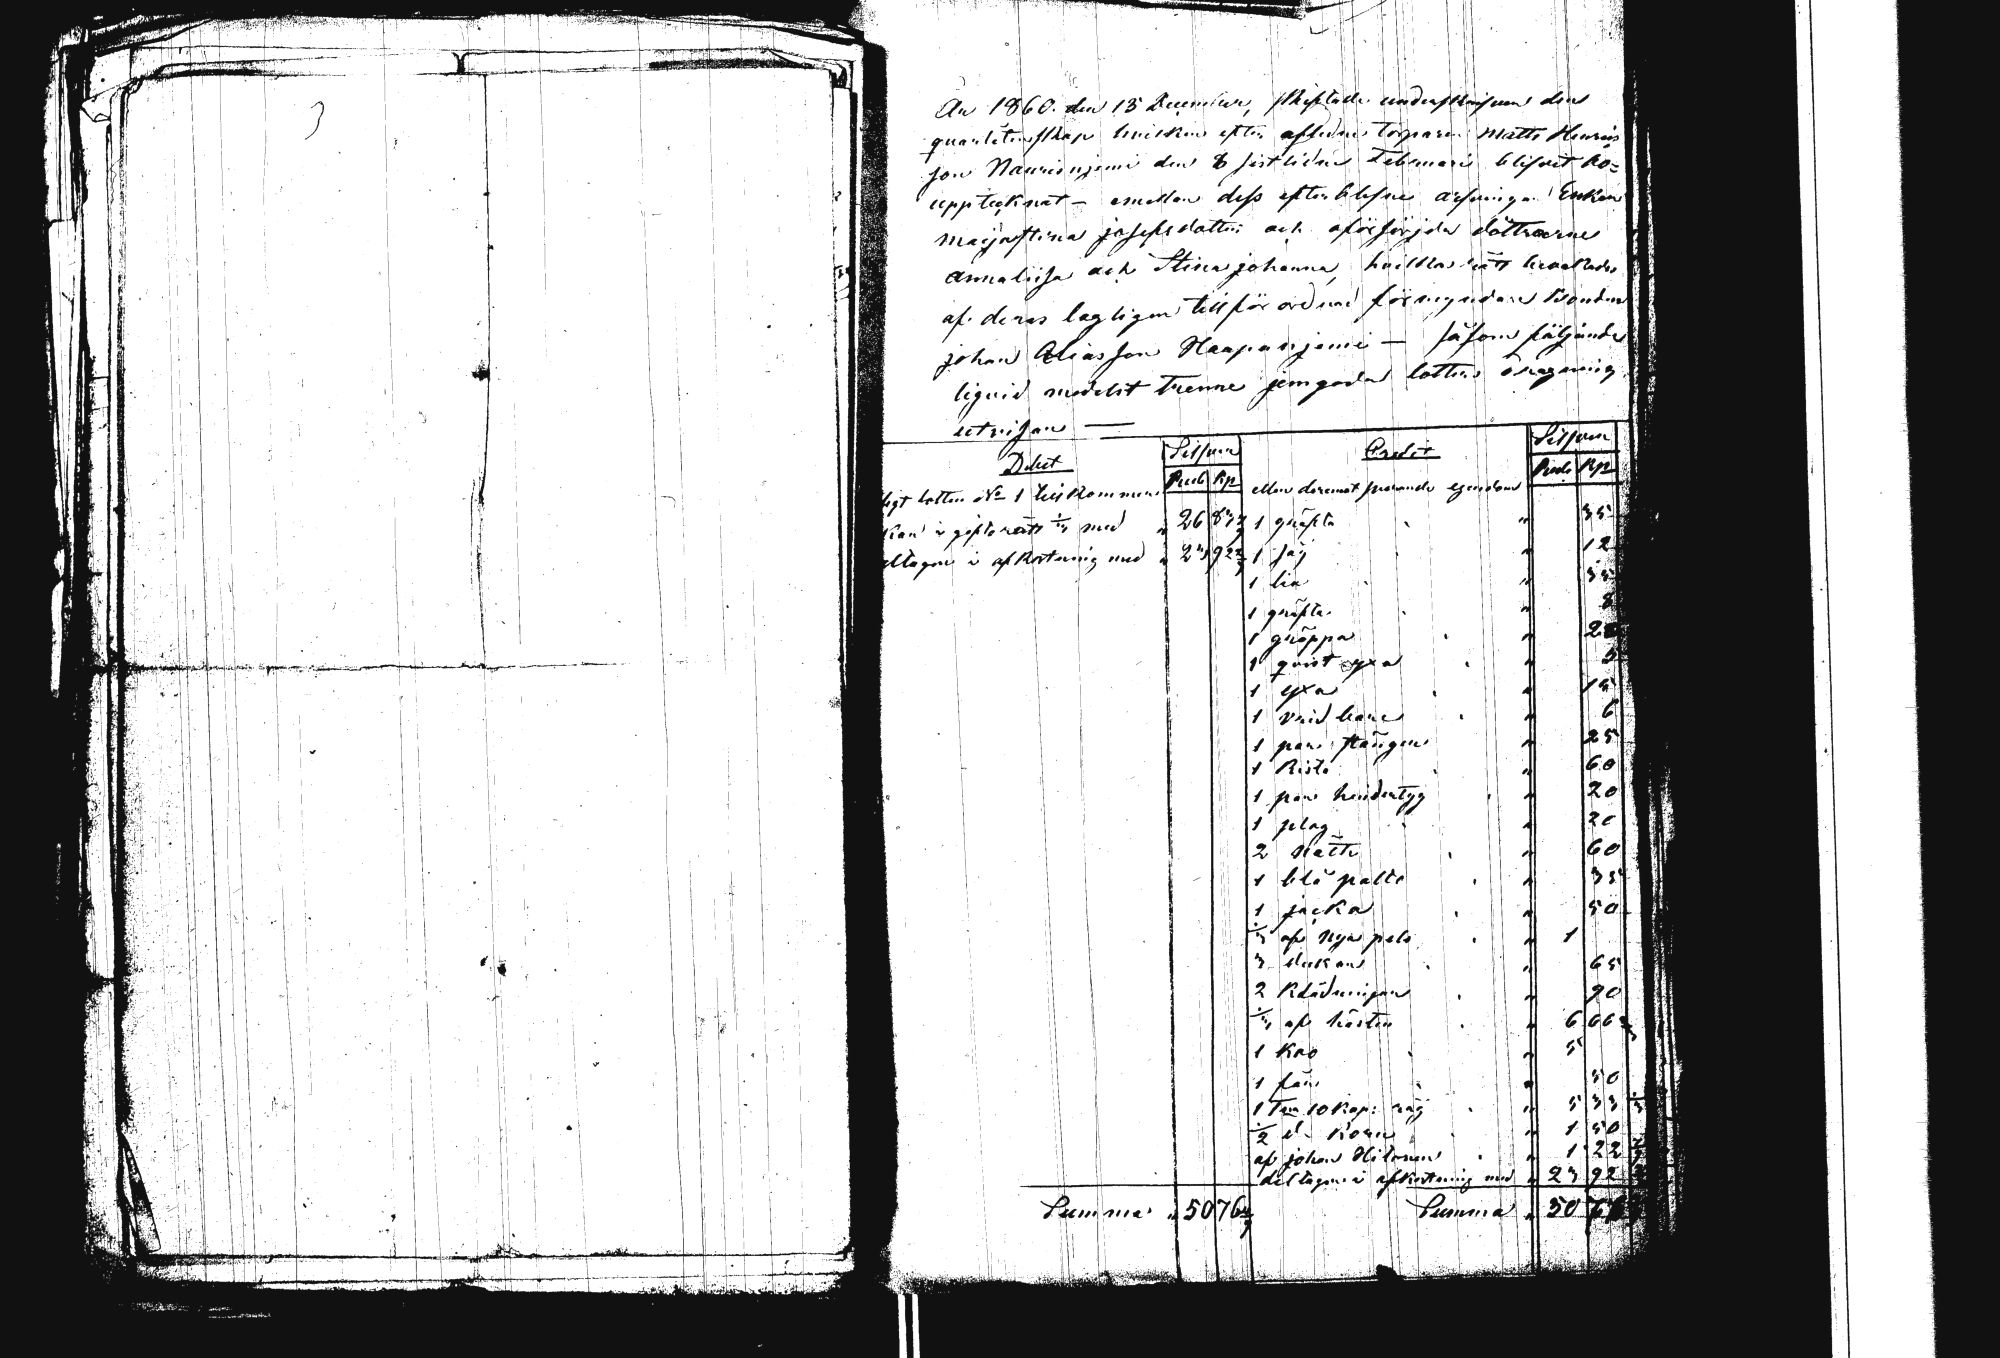 År 1860. den 15 December, skiftade underskrifven den
quarlåtenskap hvilken efter aflidne Torparen Matts Henrics
son Nauris njemi den 8 sistlidne Februari blifvit
upptecknat – emellan dess efterblefne arfvingar Enkan
Maija Stina Josefsdotter och oförsörjda döttrarne
Annaliisa och Stina Johanna, hvilkas rätt bevakades
af deras lagligen tillförordnad förmyndare Bonden
Johan Eliasson Haapanjemi – såsom följande
liquid medelst trenne jemgoda lotters dragning
utvisar —
Debet Silfver Credit Silfver
Rub Kp Rub Kp
lott No 1 tillkommer eller deremot svarande egendom
i giftorätt 1/3 med " 26 83 1 gräfta " 35
i afkortning med " 23 92 1 såg " 12
1 lia " 35
1 gräfta " 8
1 gröppa " 2
1 qvist yxa " 5
1 yxa " 15
1 " 6
1 par stänger " 25
1 Kista " 60
1 par " 20
1 plog " 20
2 nätt " 60
1 blå palto " 35
1 jacka " 50
1/3 af nya pels " 1
3 dukar " 65
2 " 90
1/3 af hästen " 6 66 2/3
1 Kao " 5
1 får " 50
1 Tna 10 Kap: råg " 5 33 1/3
1/2 d. Korn " 1 50
af Johan Hilonen " 1 22
del tagne i afkortning med " 23 92
Summa " 50 76 Summa " 50 76